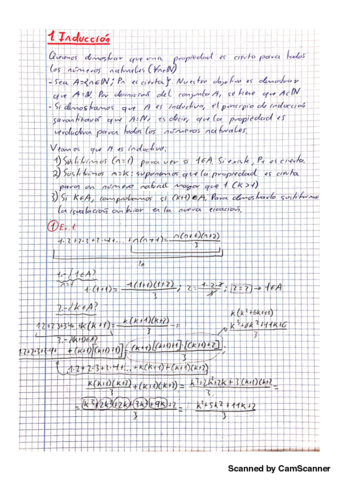 1 Inducción
Queremos demostrar que una propiedad es cierta para todos
los números naturales (∀n∈ℕ)
- Sea A={n∈ℕ; Pn es cierta}. Nuestro objetivo es demostrar
que A=ℕ. Por definición del conjunto A, se tiene que A⊂ℕ
- Si demostramos que A es inductivo, el principio de inducción
garantizará que A=ℕ, es decir, que la propiedad es
verdadera para todos los números naturales.
Veamos que A es inductivo:
1) Sustituimos (n=1) para ver si 1∈A. Si existe, P1 es cierta.
2) Sustituimos n=k: suponemos que la propiedad es cierta
para un número natural mayor que 1 (k>1)
3) Si k∈A, comprobamos si (k+1)∈A. Para demostrarlo sustituimos
la igualdad anterior en la nueva ecuación.
① Ej. 1
1·2+2·3+3·4+...+n(n+1)=n(n+1)(n+2)/3
1.- ¿1∈A?
1·(1+1)=1(1+1)(1+2)/3; 2=1·2·3/3; 2=2 → 1∈A
2.- ¿k∈A?
1·2+2·3+3·4...k(k+1)=k(k+1)(k+2)/3
+(k+1)[(k+1)+1]=(k+1)[(k+1)+1]·[(k+1)+2]/3
1·2+2·3+3·4+...+k(k+1)+(k+1)(k+2)
k(k+1)(k+2)/3+(k+1)(k+2)=
Scanned by CamScanner